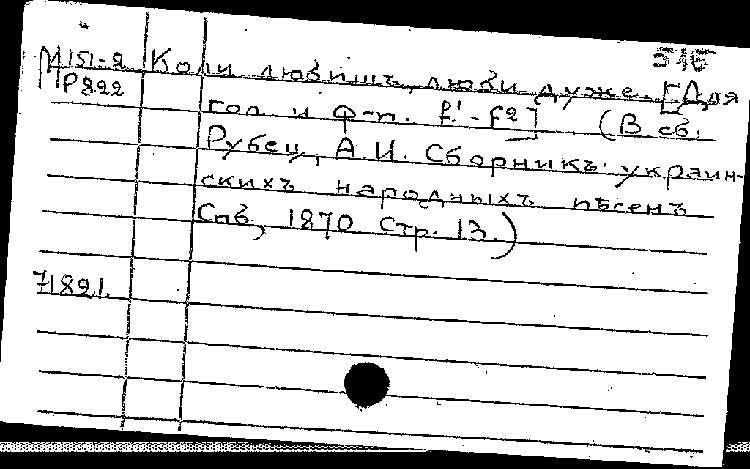 516
М151-2 Коли любишъ, люби дуже. [Для
Р822 гол. и ф-п. f¹-f²] (В сб.
Рубец, А.И. Сборникъ украин-
скихъ народныхъ пѣсенъ
Спб, 1870 Стр. 13.)
71821.